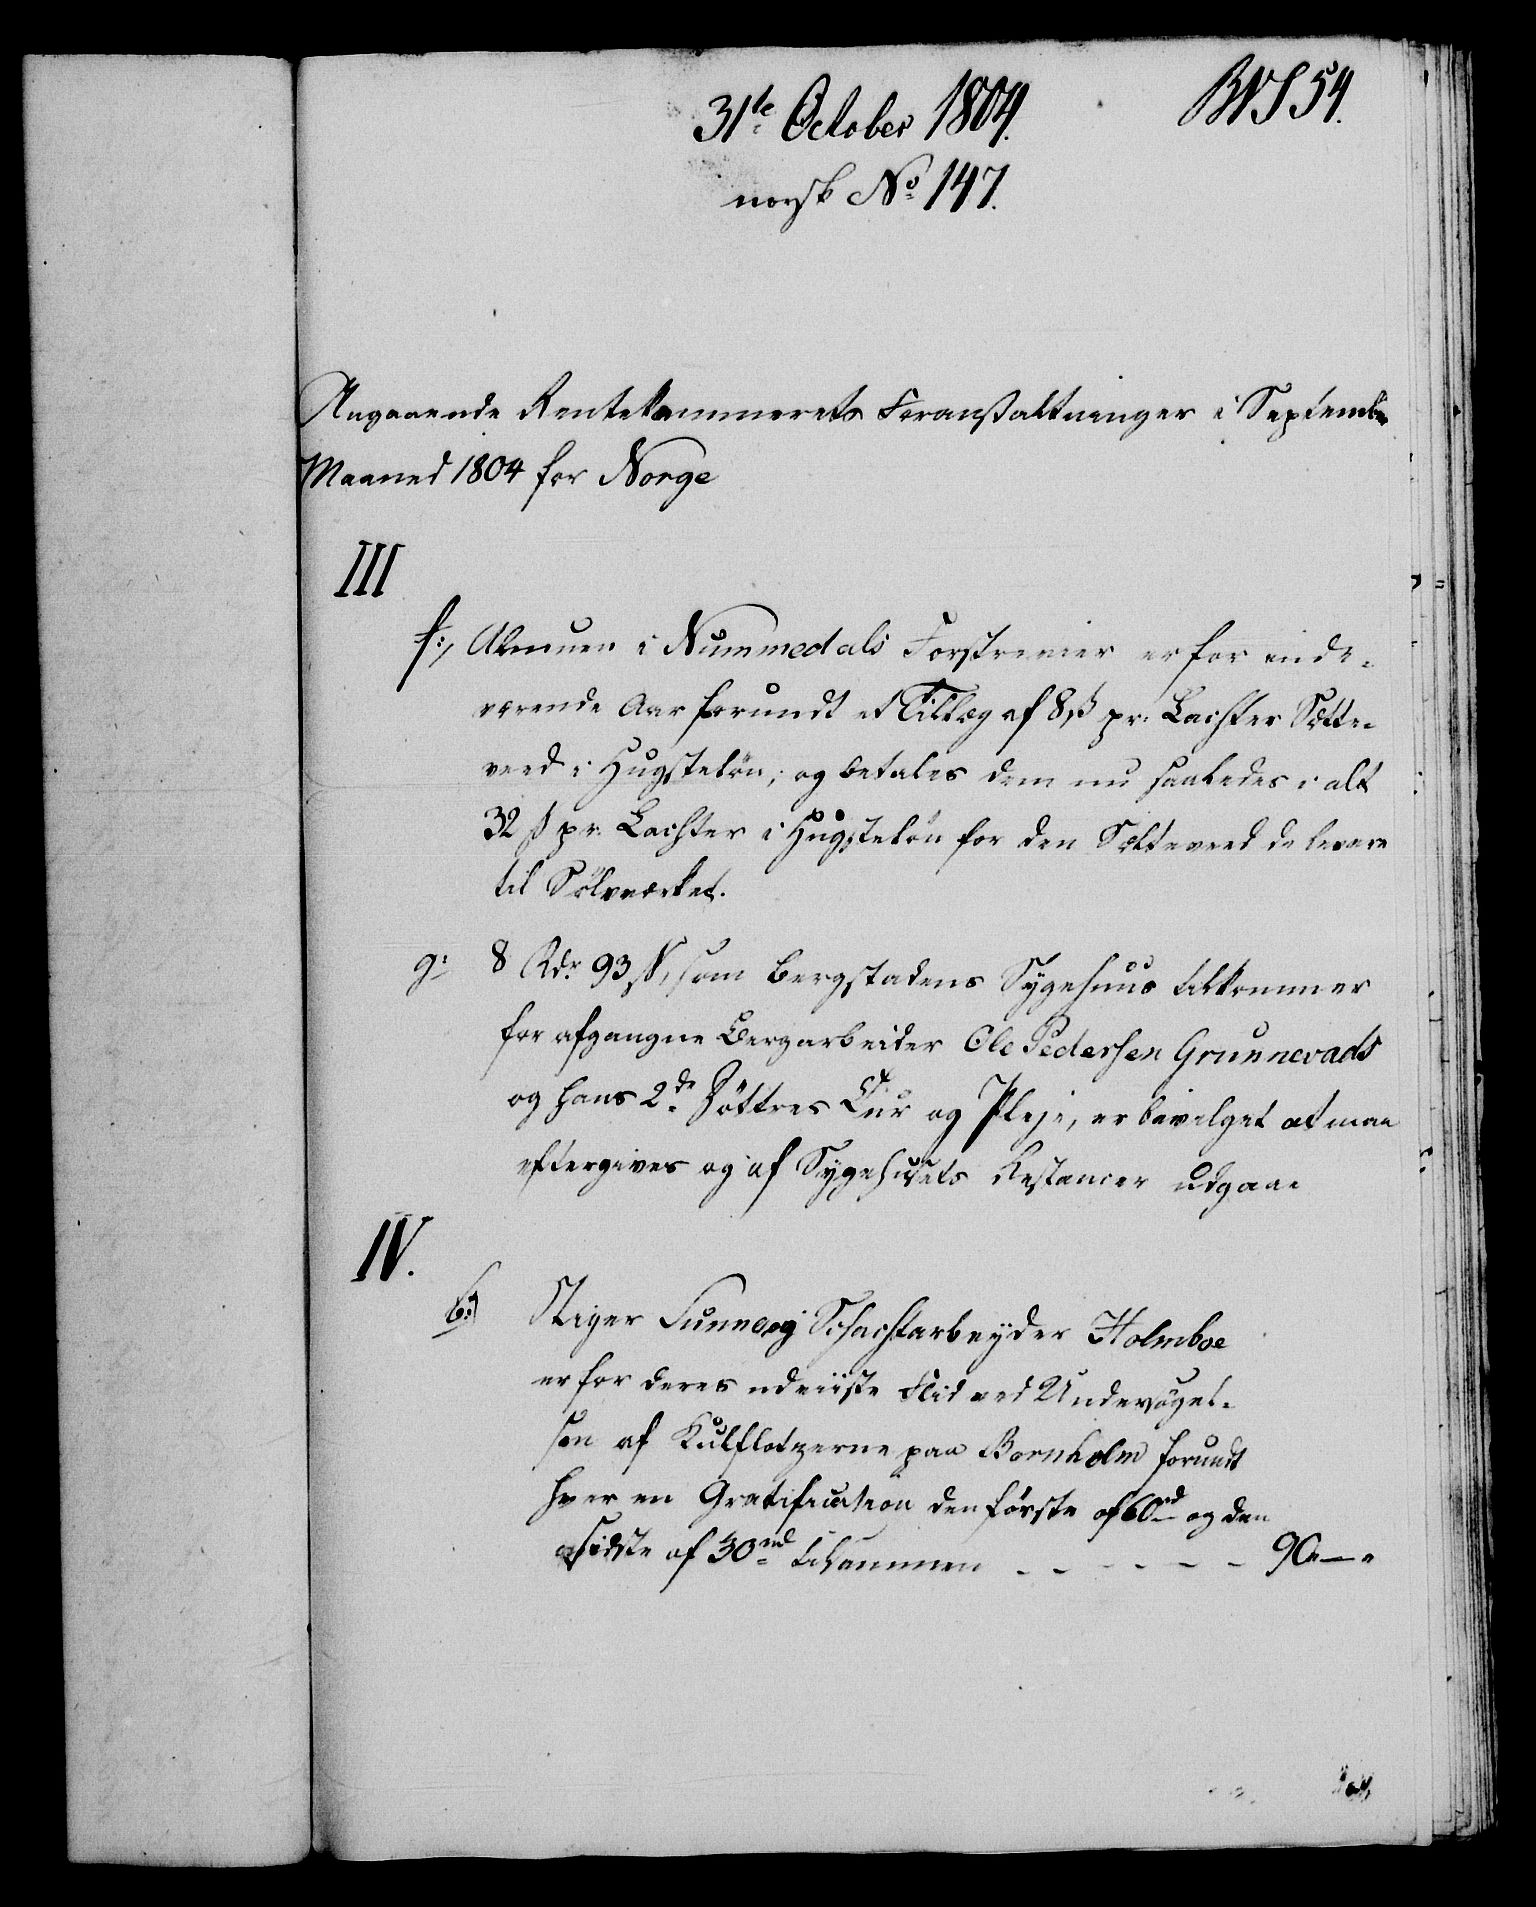 31te October 1804.
BWS 54.
norsk No 147.
Angaaende Rentekammerets Foranstaltninger i Septembr
Maaned 1804 for Norge
III
f:, Almuen i Nummedals Forstrevier er for inde-
værende Aar forundt et Tillæg af 8 ß pr. Lachter Sætte-
veed i Hugsteløn, og betales dem nu saaledes i alt
32 ß pr. Lachter i Hugsteløn for den Sætteveed de levere
til Sølvværket.
g: 8 Rdr. 93 ß, som Bergstadens Sygehuus tilkommer
for afgangne Bergarbeider Ole Pedersen Grunnevads
og hans 2de Døttres Cur og Pleje, er bevilget at maa
eftergives og af Sygehusets Restancer udgaae
IV.
b:) Stiger Sunne og Schachtarbeyder Holmboe
er for deres udviiste Flid ved Undersøgel-
sen af Kulflotzerne paa Bornholm forundt
hver en Gratification den første af 60 rd og den
sidste af 30 rd tilsammen - - - - - - 90 "—"